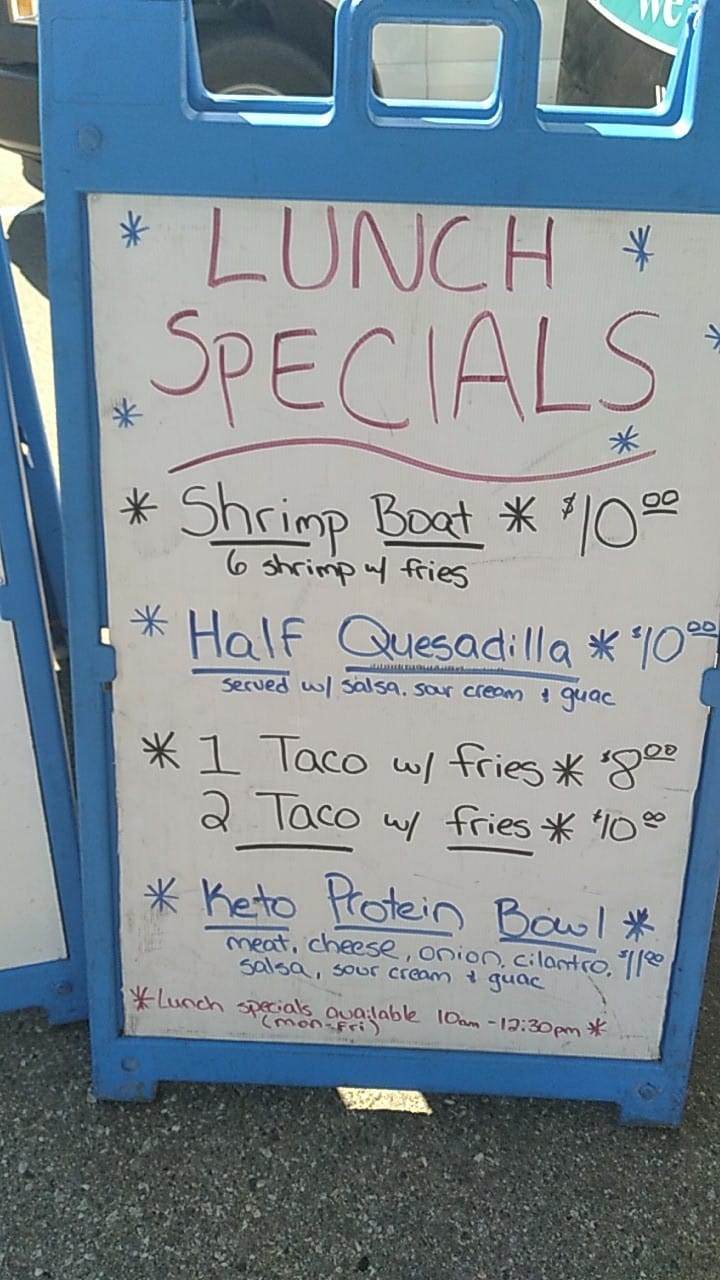 we
LUNCH
SPECIALS
* Shrimp Boat * $10.00
6 shrimp w/ fries
* Half Quesadilla * $10.00
served w/ salsa, sour cream & guac
* 1 Taco w/ fries * $8.00
2 Taco w/ fries * $10.00
* Keto Protein Bowl *
meat, cheese, onion, cilantro, $11.00
salsa, sour cream & guac
*Lunch specials available 10am - 12:30pm *
(mon-fri)